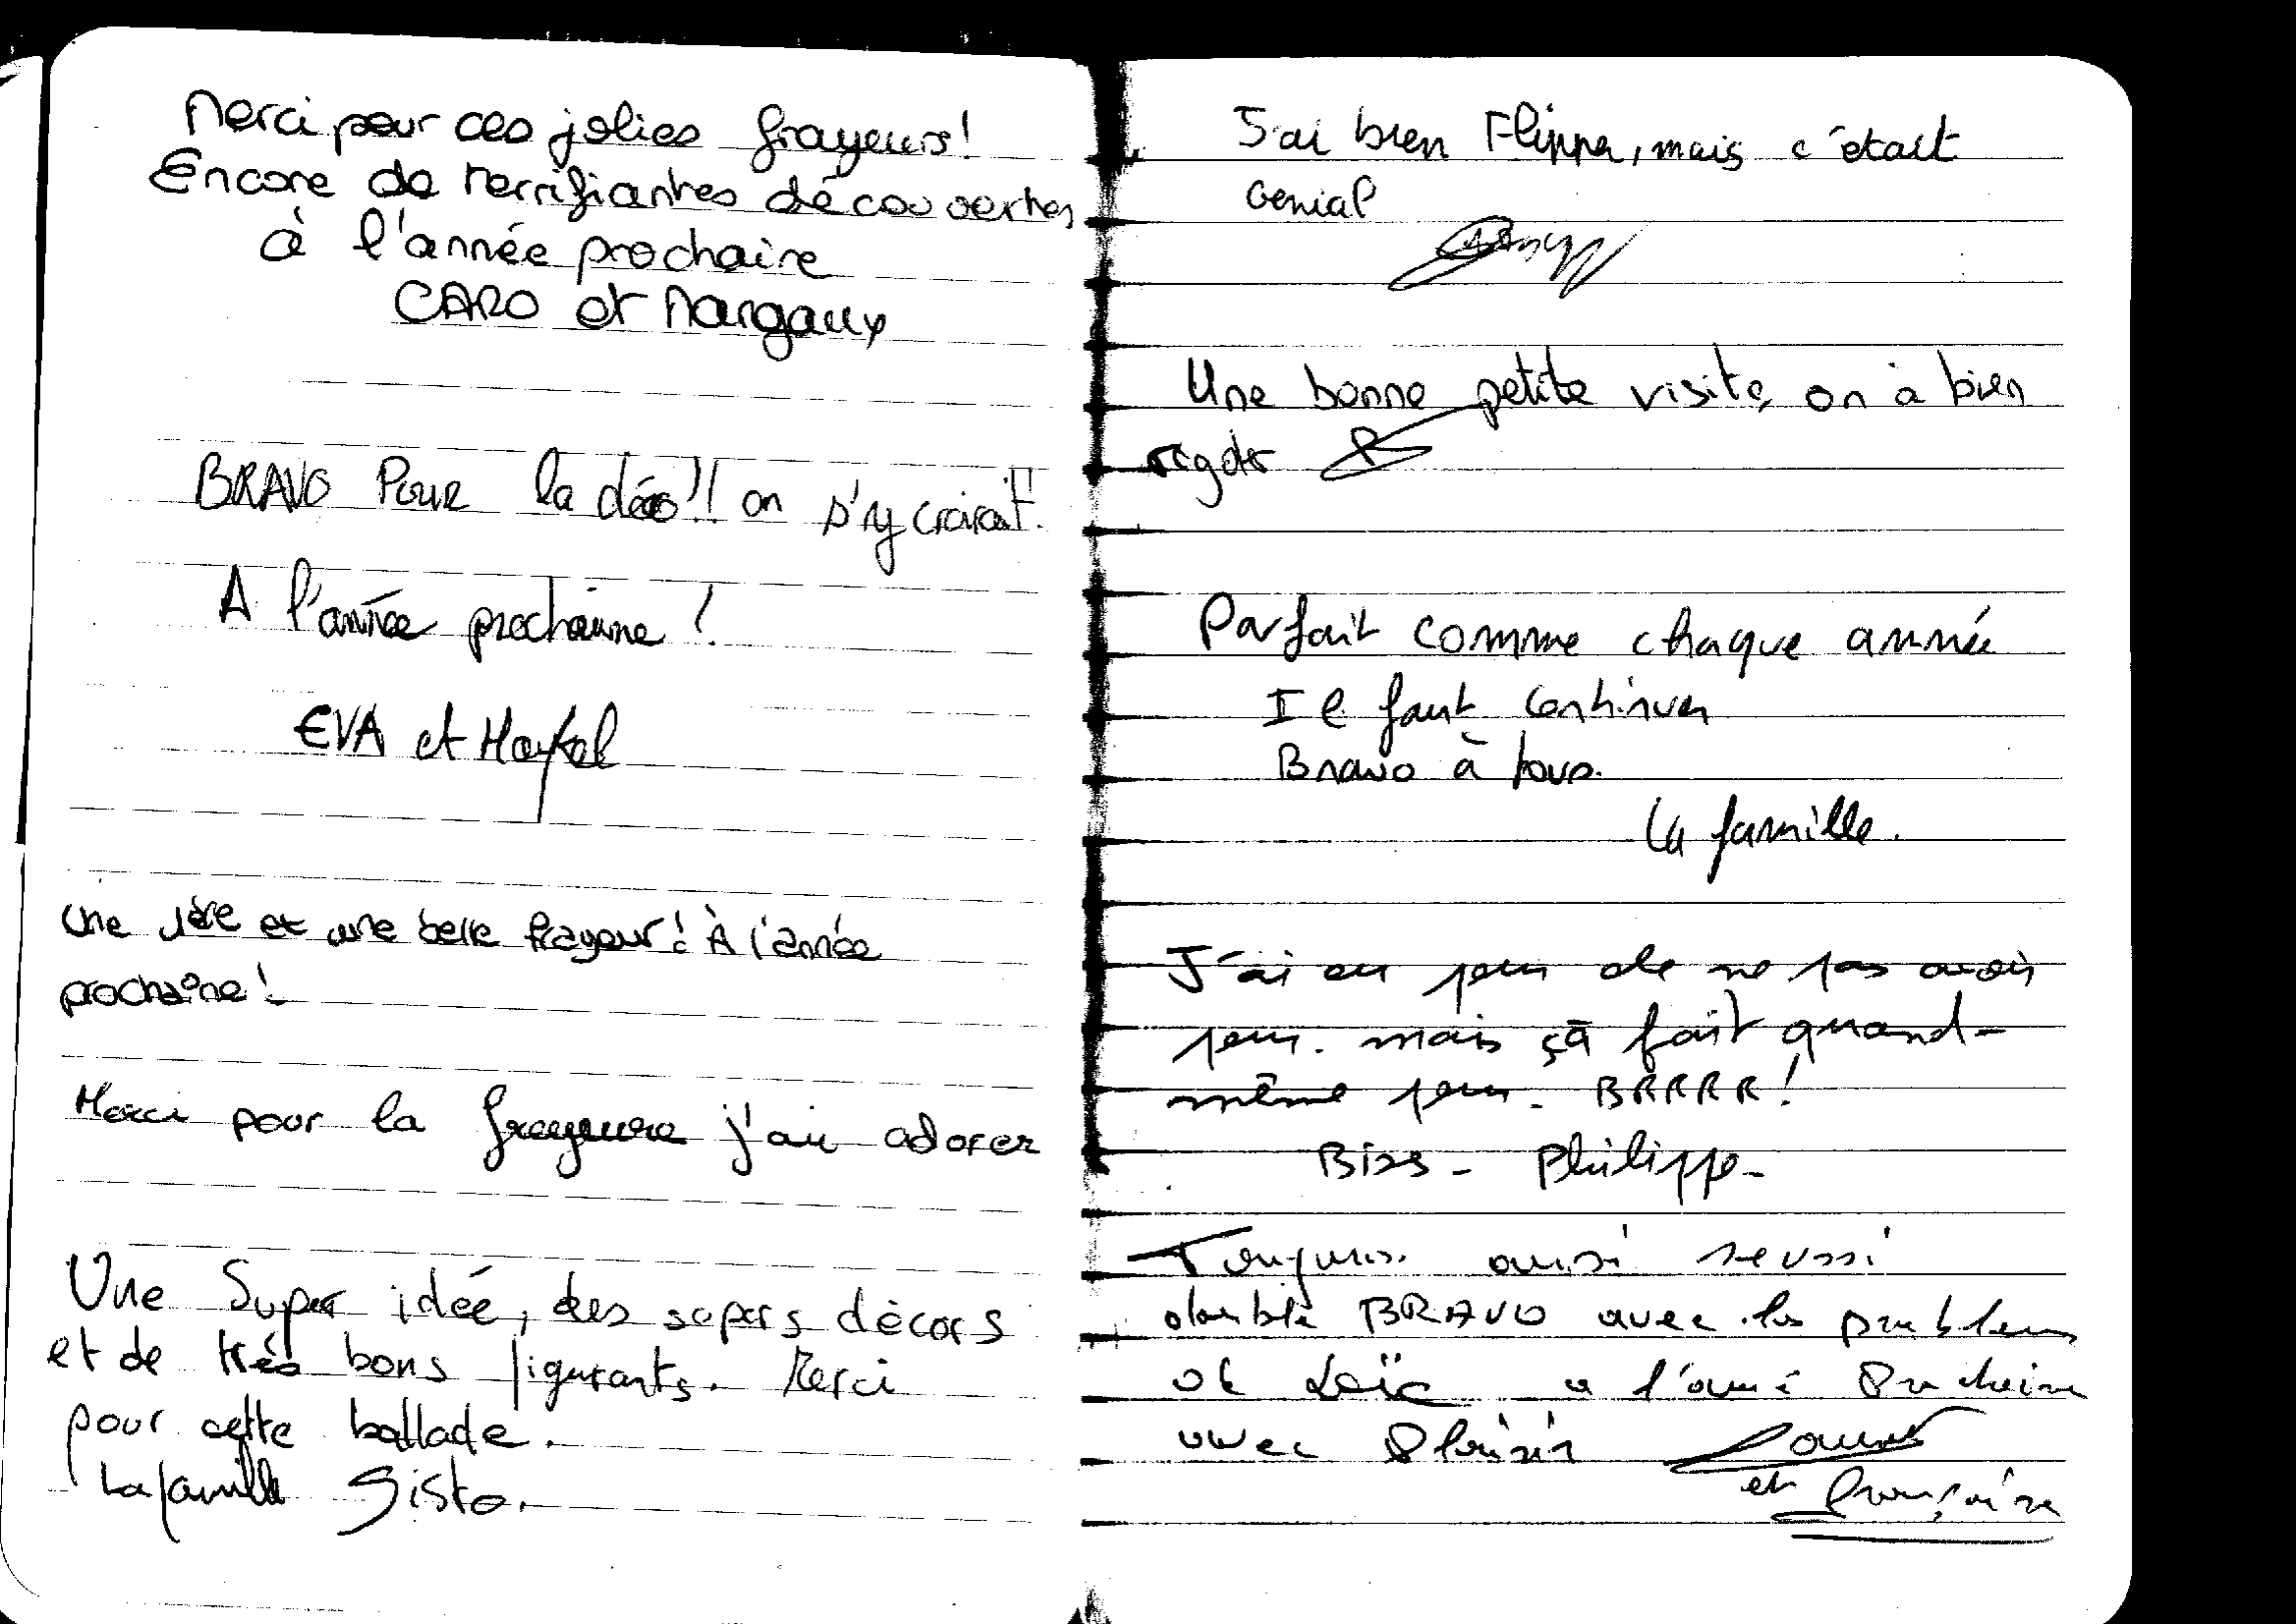 Merci pour ces jolies frayeurs!
Encore de terrifiantes découvertes
à l'année prochaine
CARO et Margaux
BRAVO POUR la déco!! on s'y croirait!
A l'année prochaine!
EVA et
Une 1ère et une belle frayeur! À l'année
prochaine!
Merci pour la j'ai adorer
Une Super idée, des supers décors
et de très bons figurants. Merci
pour cette ballade.
La famille Sisto.
J'ai bien Flipper, mais c'était
Genial
Une bonne petite visite, on à bien
rigoler
Parfait comme chaque année
Il faut continuer
Bravo à tous.
La famille.
J'ai eu peur de ne pas avoir
peur. mais çà fait quand-
même peur. BRRRR!
Bises - Philippe -
Toujours aussi reussi
double BRAVO avec les problems
de Loïc a l'anné Prochaine
avec Plaisir
et Françoise